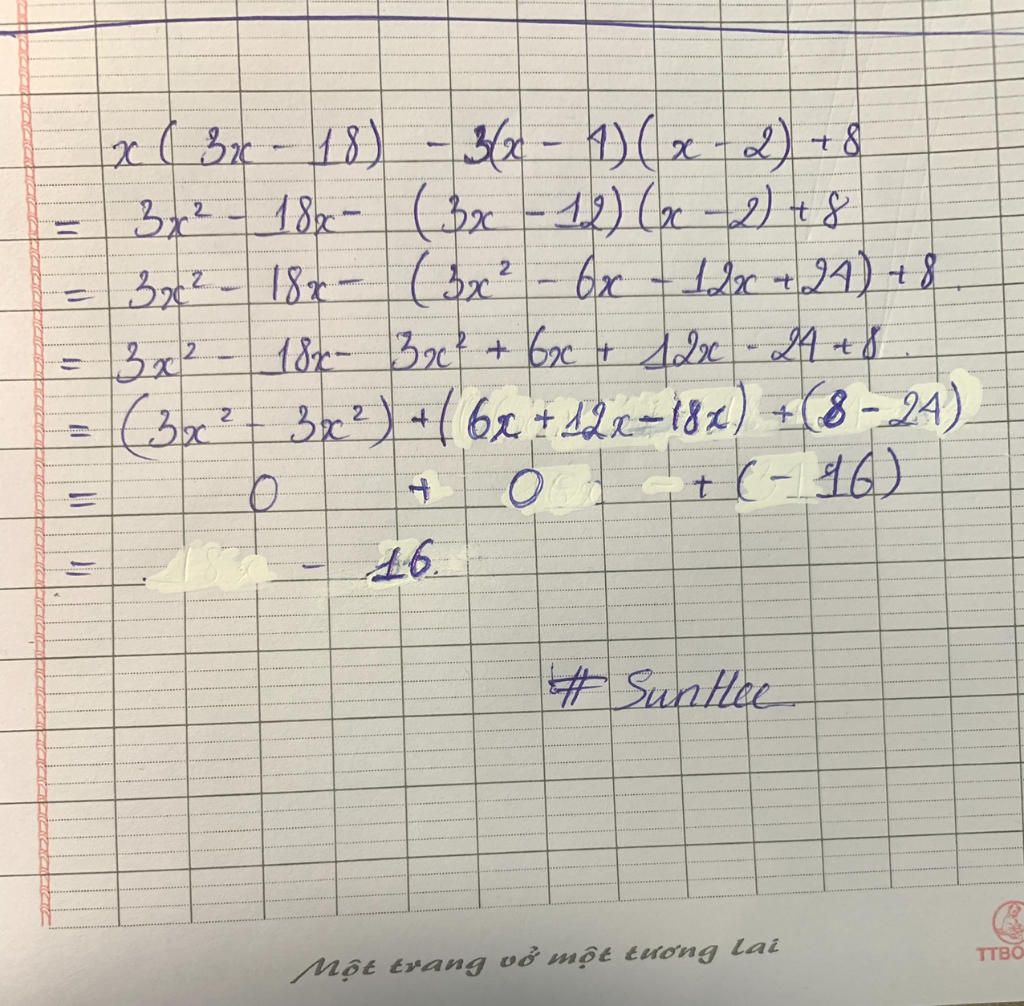 x(3x - 18) - 3(x - 4)(x - 2) + 8
= 3x² - 18x - (3x - 12)(x - 2) + 8
= 3x² - 18x - (3x² - 6x - 12x + 24) + 8.
= 3x² - 18x - 3x² + 6x + 12x - 24 + 8.
= (3x² - 3x²) + (6x + 12x - 18x) + (8 - 24)
= 0 + 0 + (-16)
= - 16.
# SunHee
Một trang vở một tương lai
TTBO